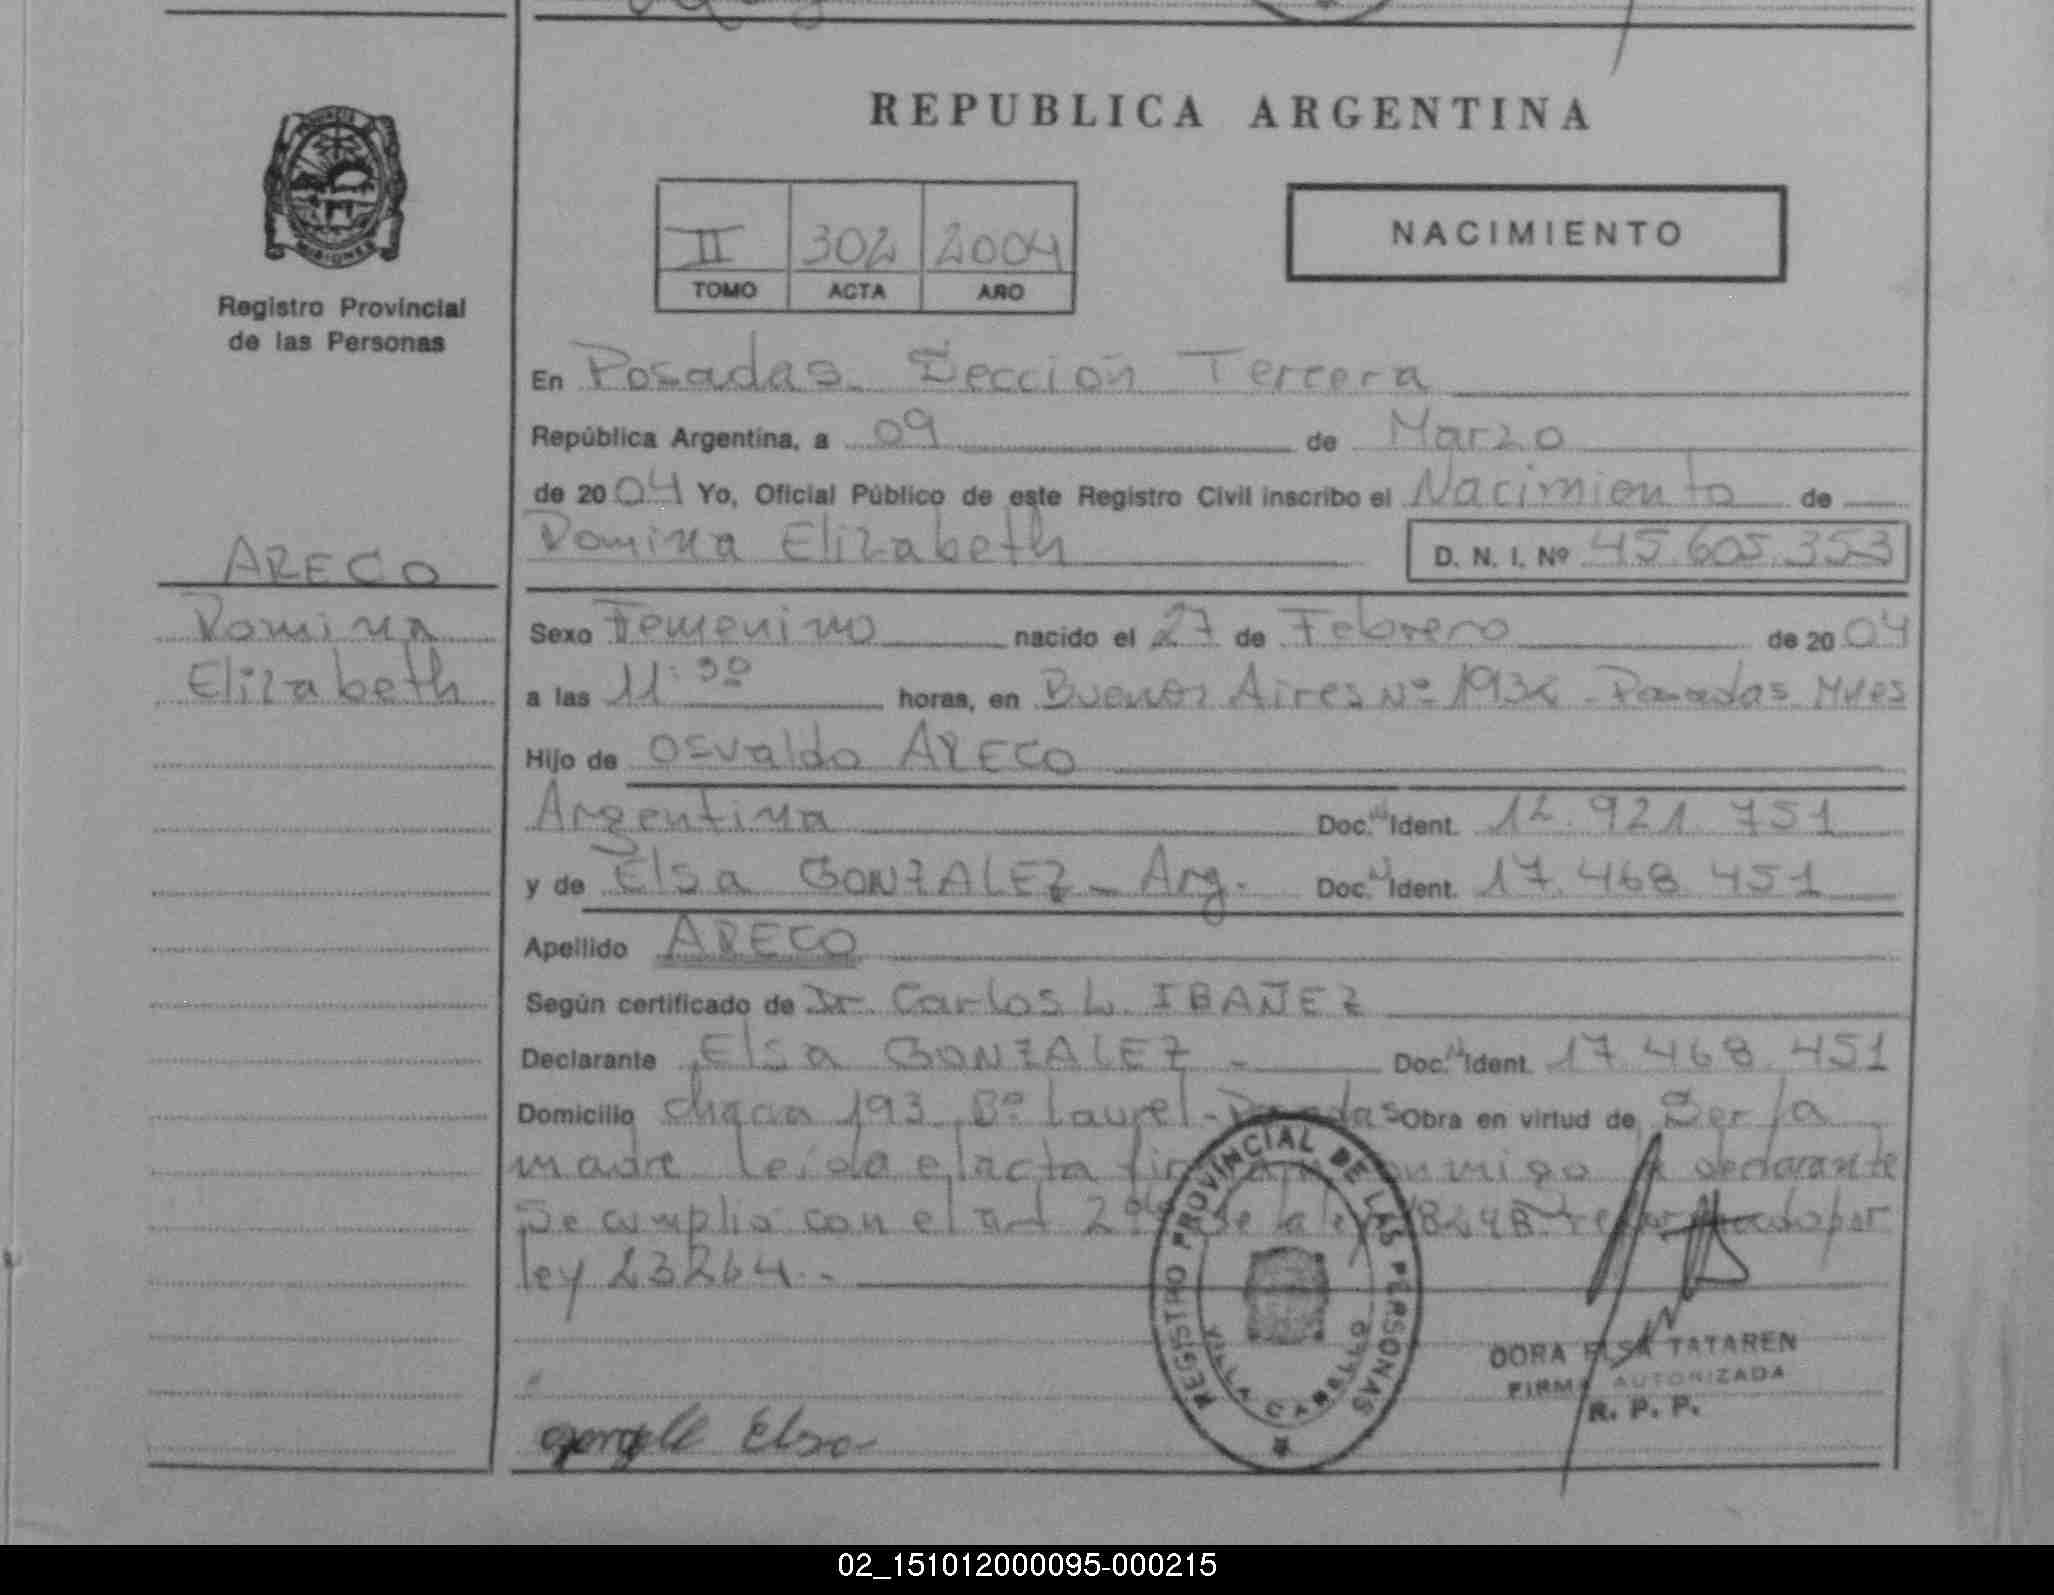 REPUBLICA ARGENTINA
PROVINCIA DE
MISIONES
Registro Provincial
de las Personas
II 302 2004
TOMO ACTA AÑO
NACIMIENTO
En Posadas. Sección Tercera
República Argentina, a 09 de Marzo
de 2004 Yo, Oficial Público de este Registro Civil inscribo el Nacimiento de
Romina Elizabeth D. N. I. Nº 45.605.353
ARECO
Romina
Elizabeth
Sexo Femenino nacido el 27 de Febrero de 2004
a las 11:30 horas, en Buenos Aires Nº - Posadas Mnes
Hijo de Osvaldo ARECO
Argentina Doc. Ident. 12.921.751
y de Elsa GONZALEZ - Arg. Doc. Ident. 17.468.451
Apellido ARECO
Según certificado de Dr. Carlos L. IBAÑEZ
Declarante Elsa GONZALEZ - Doc. Ident. 17.468.451
Domicilio chacra 193 Bº Laurel - Posadas Obra en virtud de Ser la
madre leída el acta conmigo la declarante
Se cumplió con el art 2º de la ley 18248 por
ley 23264.-
REGISTRO PROVINCIAL DE LAS PERSONAS
VILLA CABELLO
DORA ELSA TATAREN
FIRMA AUTORIZADA
R. P. P.
Elsa
02_151012000095-000215